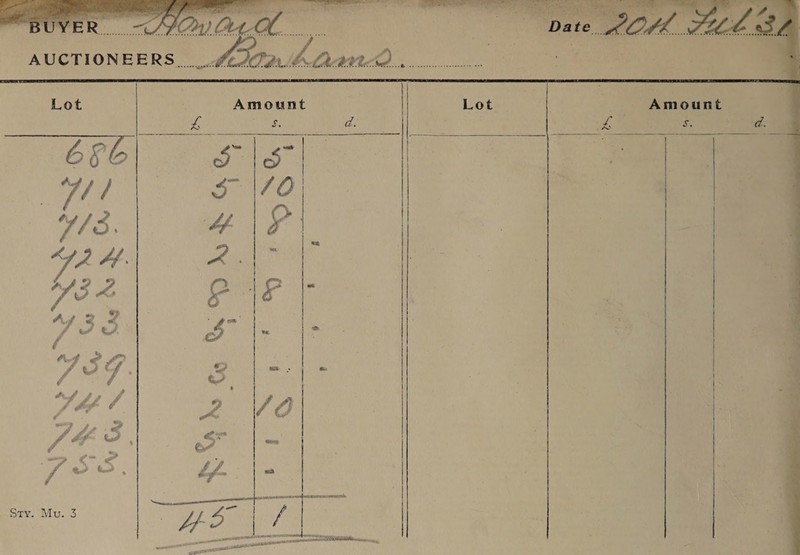 BUYER Howard Date 20th Jul '31
AUCTIONEERS Bonhams.
Lot Amount Lot Amount
£ s. d. £ s. d.
686 5 5
711 5 10
713. 4 8
724. 2. - -
732 8 8 -
733 5 - -
739. 3 - -
741 2 10
743. 5 -
753. 4 -
Sty. Mu. 3 45 1